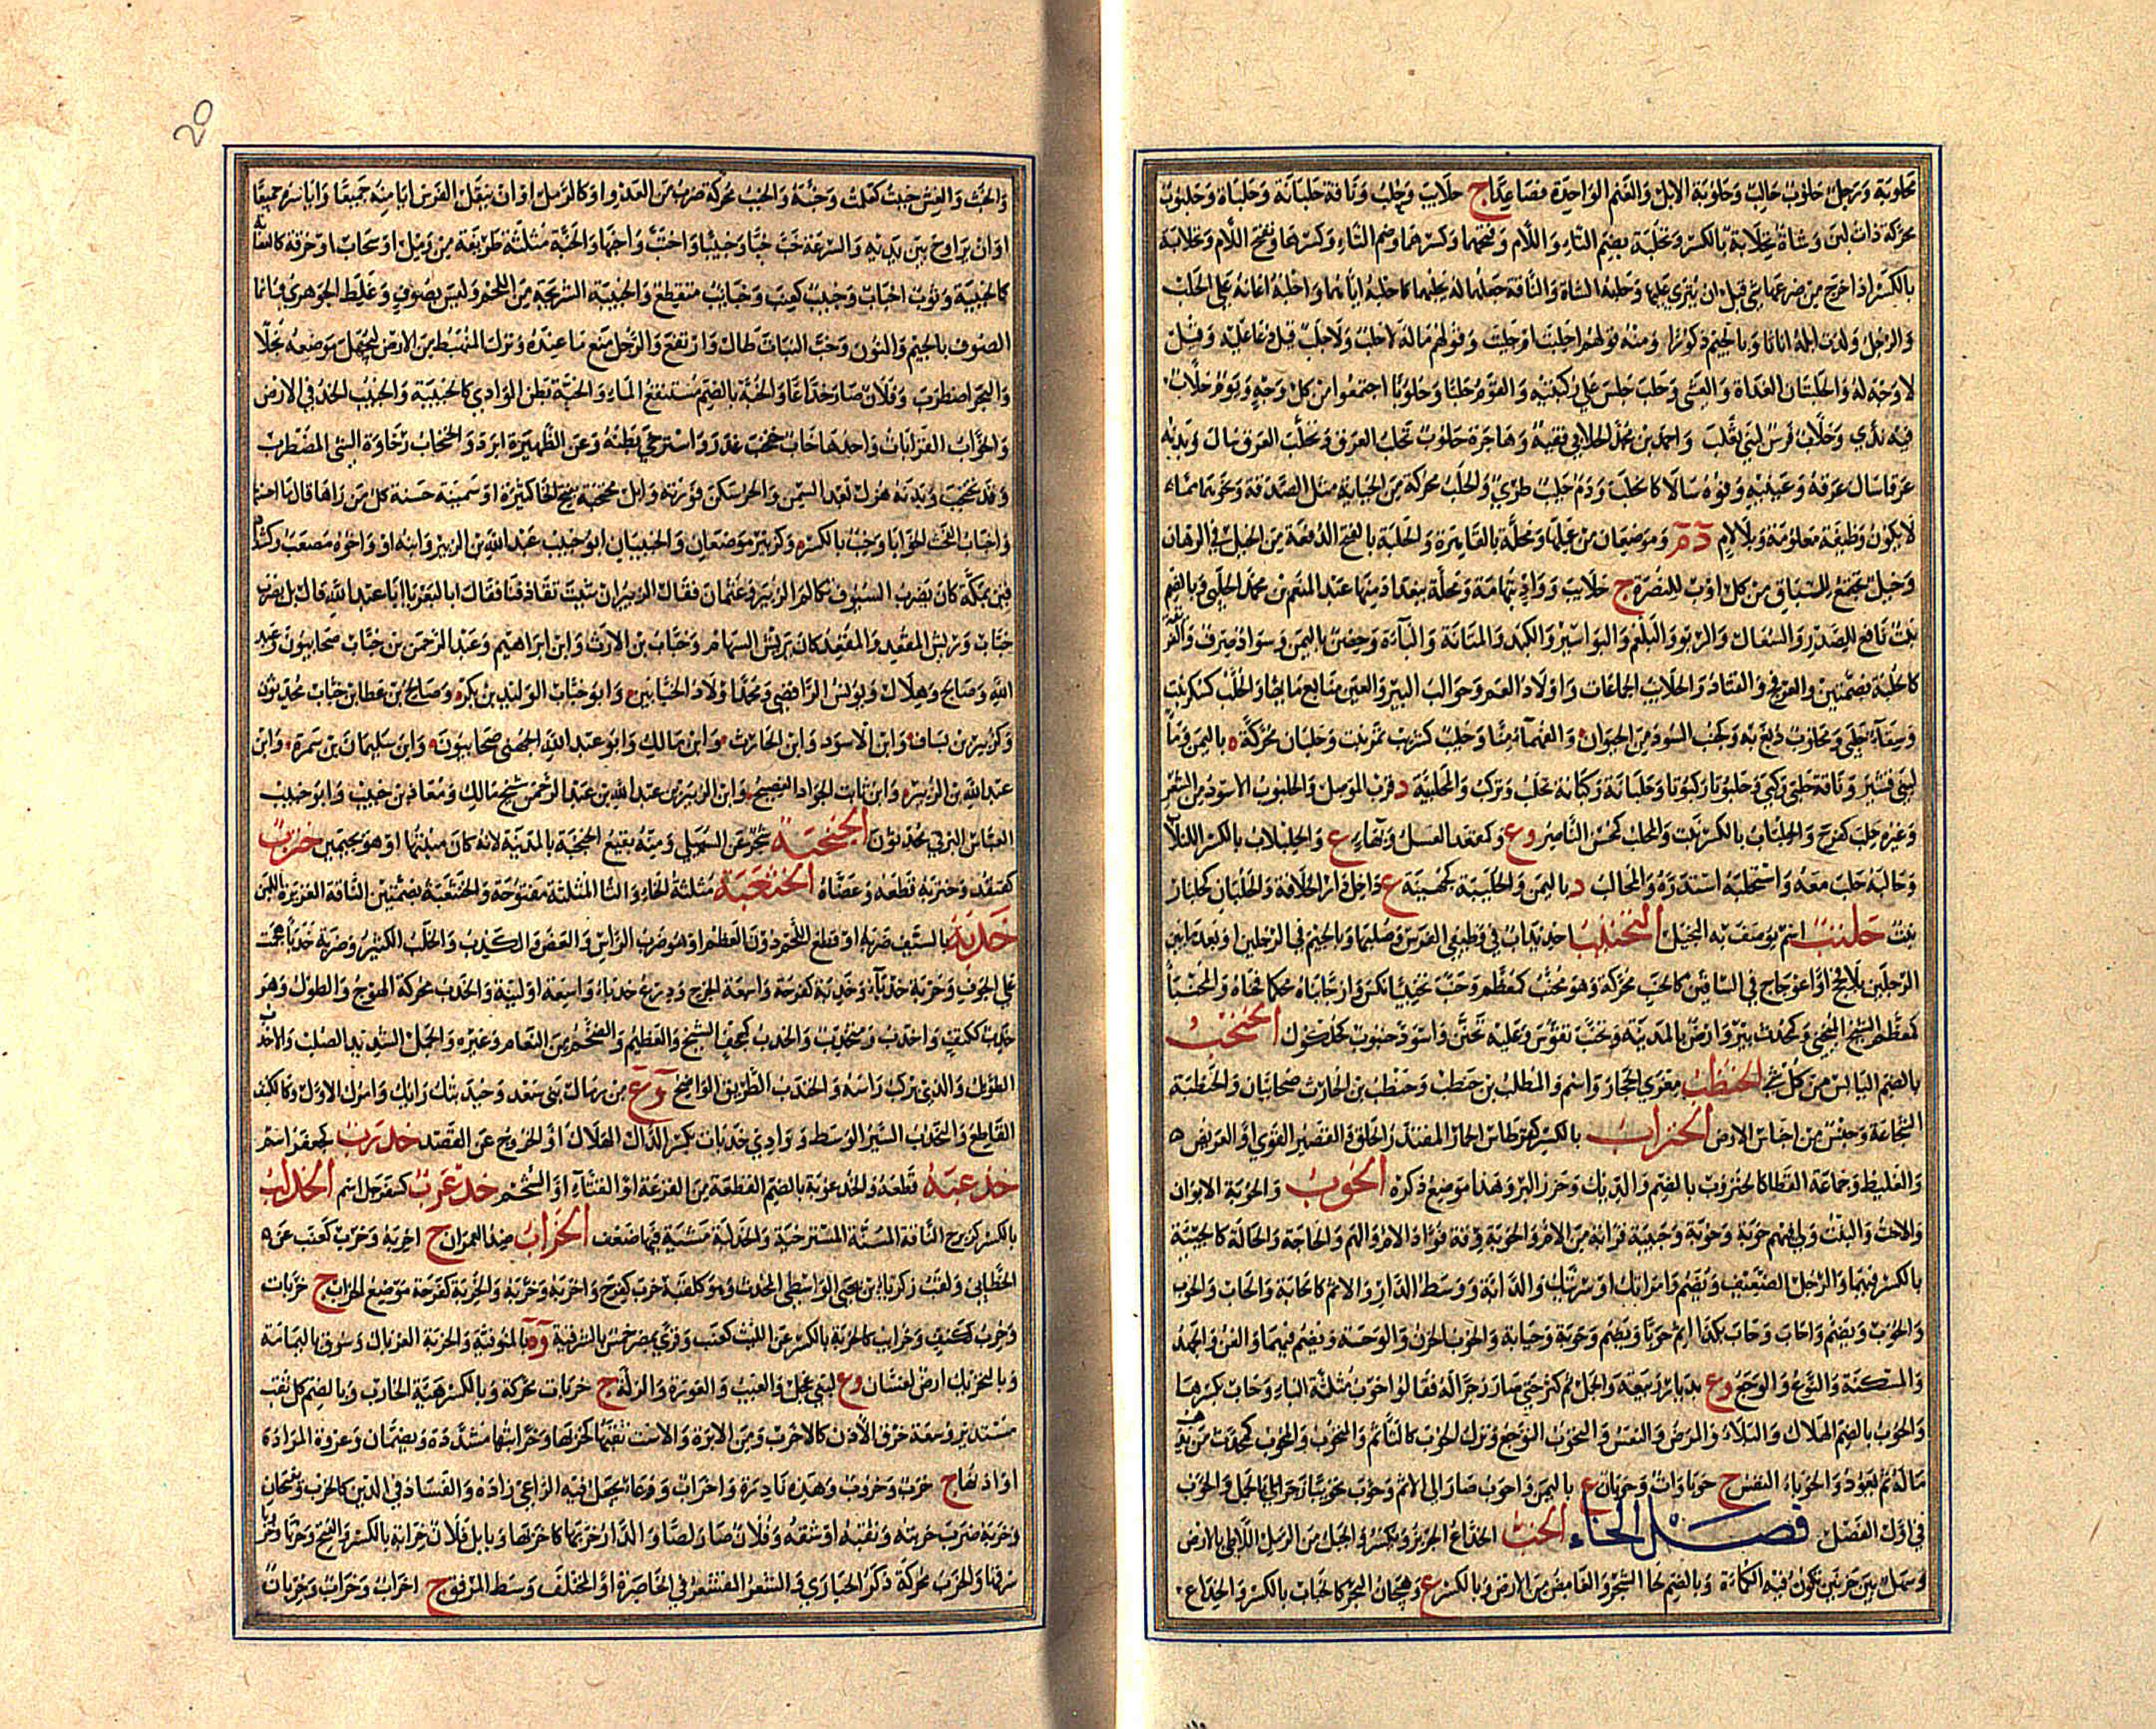 محلوبة ورجل حلوب حالب وحلوبة الابل والغنم الواحدة فصاعدا ج حلائب وحلب وناقة حلبانة وحلباة وحلبوت
محركة ذات لبن وشاة تحلابة بالكسر وتحلبة بضم التاء واللام وفتحهما وكسرهما وضم التاء وكسرها وفتح اللام وتحلابة
بالكسر اذا خرج من ضرعها شئ قبل ان ينزى عليها وحلبه الشاة والناقة جعلهما له يحلبهما كاحلبه اياهما واحلبه اعانه على الحلب
والرجل ولدت ابله اناثا وبالجيم ذكورا ومنه قولهم احلبت ام اجلبت وقولهم ماله لا حلب ولا جلب قيل دعا عليه وقيل
لا وجه له والحلبتان الغداة والعشي وحلب جلس على ركبتيه والقوم حلبا وحلوبا اجتمعوا من كل وجه ويوم حلاب
فيه ندى وحلاب فرس لبني تغلب واحمد بن محمد الحلابي فقيه وهاجرة حلوب تحلب العرق وتحلب العرق سال وبدنه
عرقا سال عرقه وعينه وفوه سالا كانحلب ودم حليب طري والحلب محركة من الجباية مثل الصدقة ونحوها مما
لا يكون وظيفة معلومة وبلا لام د م وموضعان من عملها ومحلة بالقاهرة والحلبة بالفتح الدفعة من الخيل في الرهان
وخيل تجتمع للسباق من كل اوب للنصرة ج حلائب وواد بتهامة ومحلة ببغداد منها عبد المنعم بن محمد الحلبي وبالضم
نبت نافع للصدر والسعال والربو والبلغم والبواسير والكبد والمثانة والباءة وحصن باليمن وسواد صرف والفريقة
كالحلبة بضمتين والعرفج والقتاد والحلائب الجماعات واولاد العم وحوالب البئر والعين منابع مائها والحلب كسكر نبت
وسقاء حلبي ومحلوب دبغ به وكجنب السود من الحيوان والفهماء منا وحلبب كشربب ثمر نبت وحلبان محركة ة باليمن وماء
لبني قشير وناقة حلبى ركبى وحلبوتى ركبوتى وحلبانة ركبانة تحلب وتركب والمحلبية د قرب الموصل والحلبوب الاسود من الشعر
وغيره حلب كفرح والحلباب بالكسر نبت والمحلب كمحسن الناصر وع وكمقعد العسل وبهاء ع والحلبلاب بالكسر اللبلاب
وحالبه حلب معه واستحلبه استدره والمحالب د باليمن والحليبة كجهينة ع داخل دار الخلافة والحلبان كجلنار
نبت حلتب اسم يوصف به البخيل التحنيب احديداب في وظيفي الفرس وصلبها وبالجيم في الرجلين او بعد ما بين
الرجلين بلا فحج او اعوجاج في الساقين كالحنب محركة وهو محنب كمعظم وحنب تحنيبا نكس وازجا بناه محكما فحناه والمحنب
كمعظم الشيخ المنحني وكمحدث بئر وارض بالمدينة وتحنب تقوس وعليه تحنن واسود حنبوب حلكوك الحنجب
بالضم اليابس من كل شئ الحنظب معزى الحجاز واسم والمطلب بن حنطب وحنطب بن الحارث صحابيان والحنطبة
الشجاعة وجنس من اجناس الارض الحنزاب بالكسر كقرطاس الحمار المقتدر الخلق والقصير القوي او العريض
والغليظ وجماعة القطا كالحنزوب بالضم والديك وجزر البر وهذا موضع ذكره الحوب والحوبة الابوان
والاخت والبنت ولي فيهم حوبة وحوبة وحيبة قرابة من الام والحوبة رقة فؤاد الام والهم والحاجة والحالة كالحيبة
بالكسر فيهما والرجل الضعيف ويضم وامراتك وسريتك والدابة ووسط الدار والاثم كالحابة والحاب والحوب
والحوب ويضم واحاب وحاب بكذا اثم حوبا ويضم وحوبة وحيابة والحوب الحزن والوحشة ويضم فيهما والفن والجهد
والمسكنة والنوع والوجع وع بديار ربيعة والجمل ثم كثر حتى صار زجرا له فقالوا حوب مثلثة الباء وحاب بكسرها
والحوب بالضم الهلاك والبلاء والمرض والنفس والتحوب التوجع وترك الحوب كالتأثم والمتحوب والمحوب كمحدث من يذهب
ماله ثم يعود والحوباء النفس ج حوباوات وحوبان ع باليمن واحوب صار الى الاثم وحوب تحويبا زجر اي بالجمل والحوب
في اول الفصل فصل الخاء الخب الخداع الجربز ويكسر والحبل من الرمل اللاطئ بالارض
وسهل بين حزنين تكون فيه الكماءة وبالضم لحاء الشجر والغامض من الارض وبالكسر ع وهيجان البحر كالخباب بالكسر والخداع
20
والخبث والغش خببت كعلمت وخبه والخبب محركة ضرب من العدو او كالرمل او ان ينقل الفرس ايامنه جميعا واياسره جميعا
او ان يراوح بين يديه والسرعة خب خبا وخبيبا واختب واخبها والخبة مثلثة طريقة من رمل او سحاب او خرقة كالعصابة
كالخبيبة وثوب اخباب وخبب كعنب وخبائب متقطع والخبيبة الشريحة من اللحم وليس بصوف وغلط الجوهري فانما
الصوف بالجيم والنون وخب النبات طال وارتفع والرجل منع ما عنده ونزل المنهبط من الارض ليجهل موضعه بخلا
والبحر اضطرب وفلان صار خداعا والخبة بالضم مستنقع الماء والخبة بطن الوادي كالخبيبة والخبيب الخد في الارض
والخواب القرابات واحدها خاب وخبخب غدر واسترخى بطنه وعن الظهيرة ابرد والخبخاب رخاوة الشئ المضطرب
وقد تخبخب وبدنه هزل بعد السمن والحر سكن فورته وابل مخبخبة بفتح الخاء كثيرة او سمينة حسنة كل من راها قال ما احسنها
واخباب الفحث الحوايا وخب بالكسر وكزبير موضعان والخبيبان ابو خبيب عبد الله بن الزبير وابنه او واخوه مصعب وكشداد
قين بمكة كان يضرب السيوف تكالم الزبير وعثمان فقال الزبير ان شئت تقاذفنا فقال ابالبعر يا ابا عبد الله قال بل بضرب
خباب وريش المقعد والمقعد كان يريش السهام وخباب بن الارت وابن ابراهيم وعبد الرحمن بن خباب صحابيون وعبد
الله وصالح وهلال ويونس الرافضي ومحمد اولاد الخبابين وابو خباب الوليد بن بكير وصالح بن عطاء بن خباب محدثون
وكزبير بن يساف وابن الاسود وابن الحارث وابن مالك وابو عبد الله الجهني صحابيون وابن سليمان بن سمرة وابن
عبد الله بن الزبير وابن ثابت الجواد الفصيح وابن الزبير بن عبد الله بن عبد الرحمن شيخ مالك ومعاذ بن خبيب وابو خبيب
العباس البرتي محدثون الخبجبة شجر عن السهيلي ومنه بقيع الخبجبة بالمدينة لانه كان منبتها او هو بجيمين خترب
كقنفذ وختربه قطعه وعضاه الخنثعبة مثلثة الخاء والثاء المثلثة مفتوحة والخنثعبة بضمتين الناقة الغزيرة اللبن
خدبه بالسيف ضربه او قطع اللحم دون العظم او هو ضرب الراس والعض والكذب والحلب الكثير وضربة خدباء هجمت
على الجوف وحربة خدباء وخدبة كفرحة واسعة الجرح ودرع خدباء واسعة او لينة والخدب محركة الهوج والطول وهو
خدب ككتف واخدب ومتخدب والخدب كهجف الشيخ والعظيم والضخم من النعام وغيره والجمل الشديد الصلب والاخدب
الطويل والذي يركب راسه والخيدب الطريق الواضح وع من رمال بني سعد وخيدبتك رايك وامرك الاول وكالكتف
القاطع والخدب السير الوسط ووادي خدبات بكسر الدال الهلاك او الخروج عن القصد خدرب كجعفر اسم
خذعبه قطعه والخذعوبة بالضم القطعة من القرعة او القثاء او الشحم خدعرب كسفرجل اسم الخذلب
بالكسر كزبرج الناقة المسنة المسترخية والخذلبة مشية فيها ضعف الخراب ضد العمران ج اخربة وخرب كعنب عن
الخطابي ولقب زكرياء بن يحيى الواسطي المحدث وهو كلقبه خرب كفرح واخربه وخربه والخربة كفرحة موضع الخراب ج خربات
وخرب ككتف وخرائب كالخربة بالكسر عن الليث كعنب وقرى بمصر خمس بالشرقية وة بالمنوفية والخربة الغربال وسوق باليمامة
وبالتحريك ارض لغسان وع لبني عجل والعيب والعورة والزلة ج خربات محركة وبالكسر هيئة الخارب وبالضم كل ثقب
مستدير وسعة خرق الاذن كالاخرب ومن الابرة والاست ثقبها كخربها وخرابتها مشددة ويضمان وعروة المزادة
او اذنها ج خرب وخروب وهذه نادرة واخراب ووعاء يجعل فيه الراعي زاده والفساد في الدين كالخرب ويفتحان
وخربه ضرب خربته وثقبه او شقه وفلان صار لصا والدار خربها كاخربها وبابل فلان خرابة بالكسر والفتح وخربا وخروبا
سرقها والخرب محركة ذكر الحبارى والشعر المقشعر في الخاصرة او المختلف وسط المرفق ج اخراب وخراب وخربان